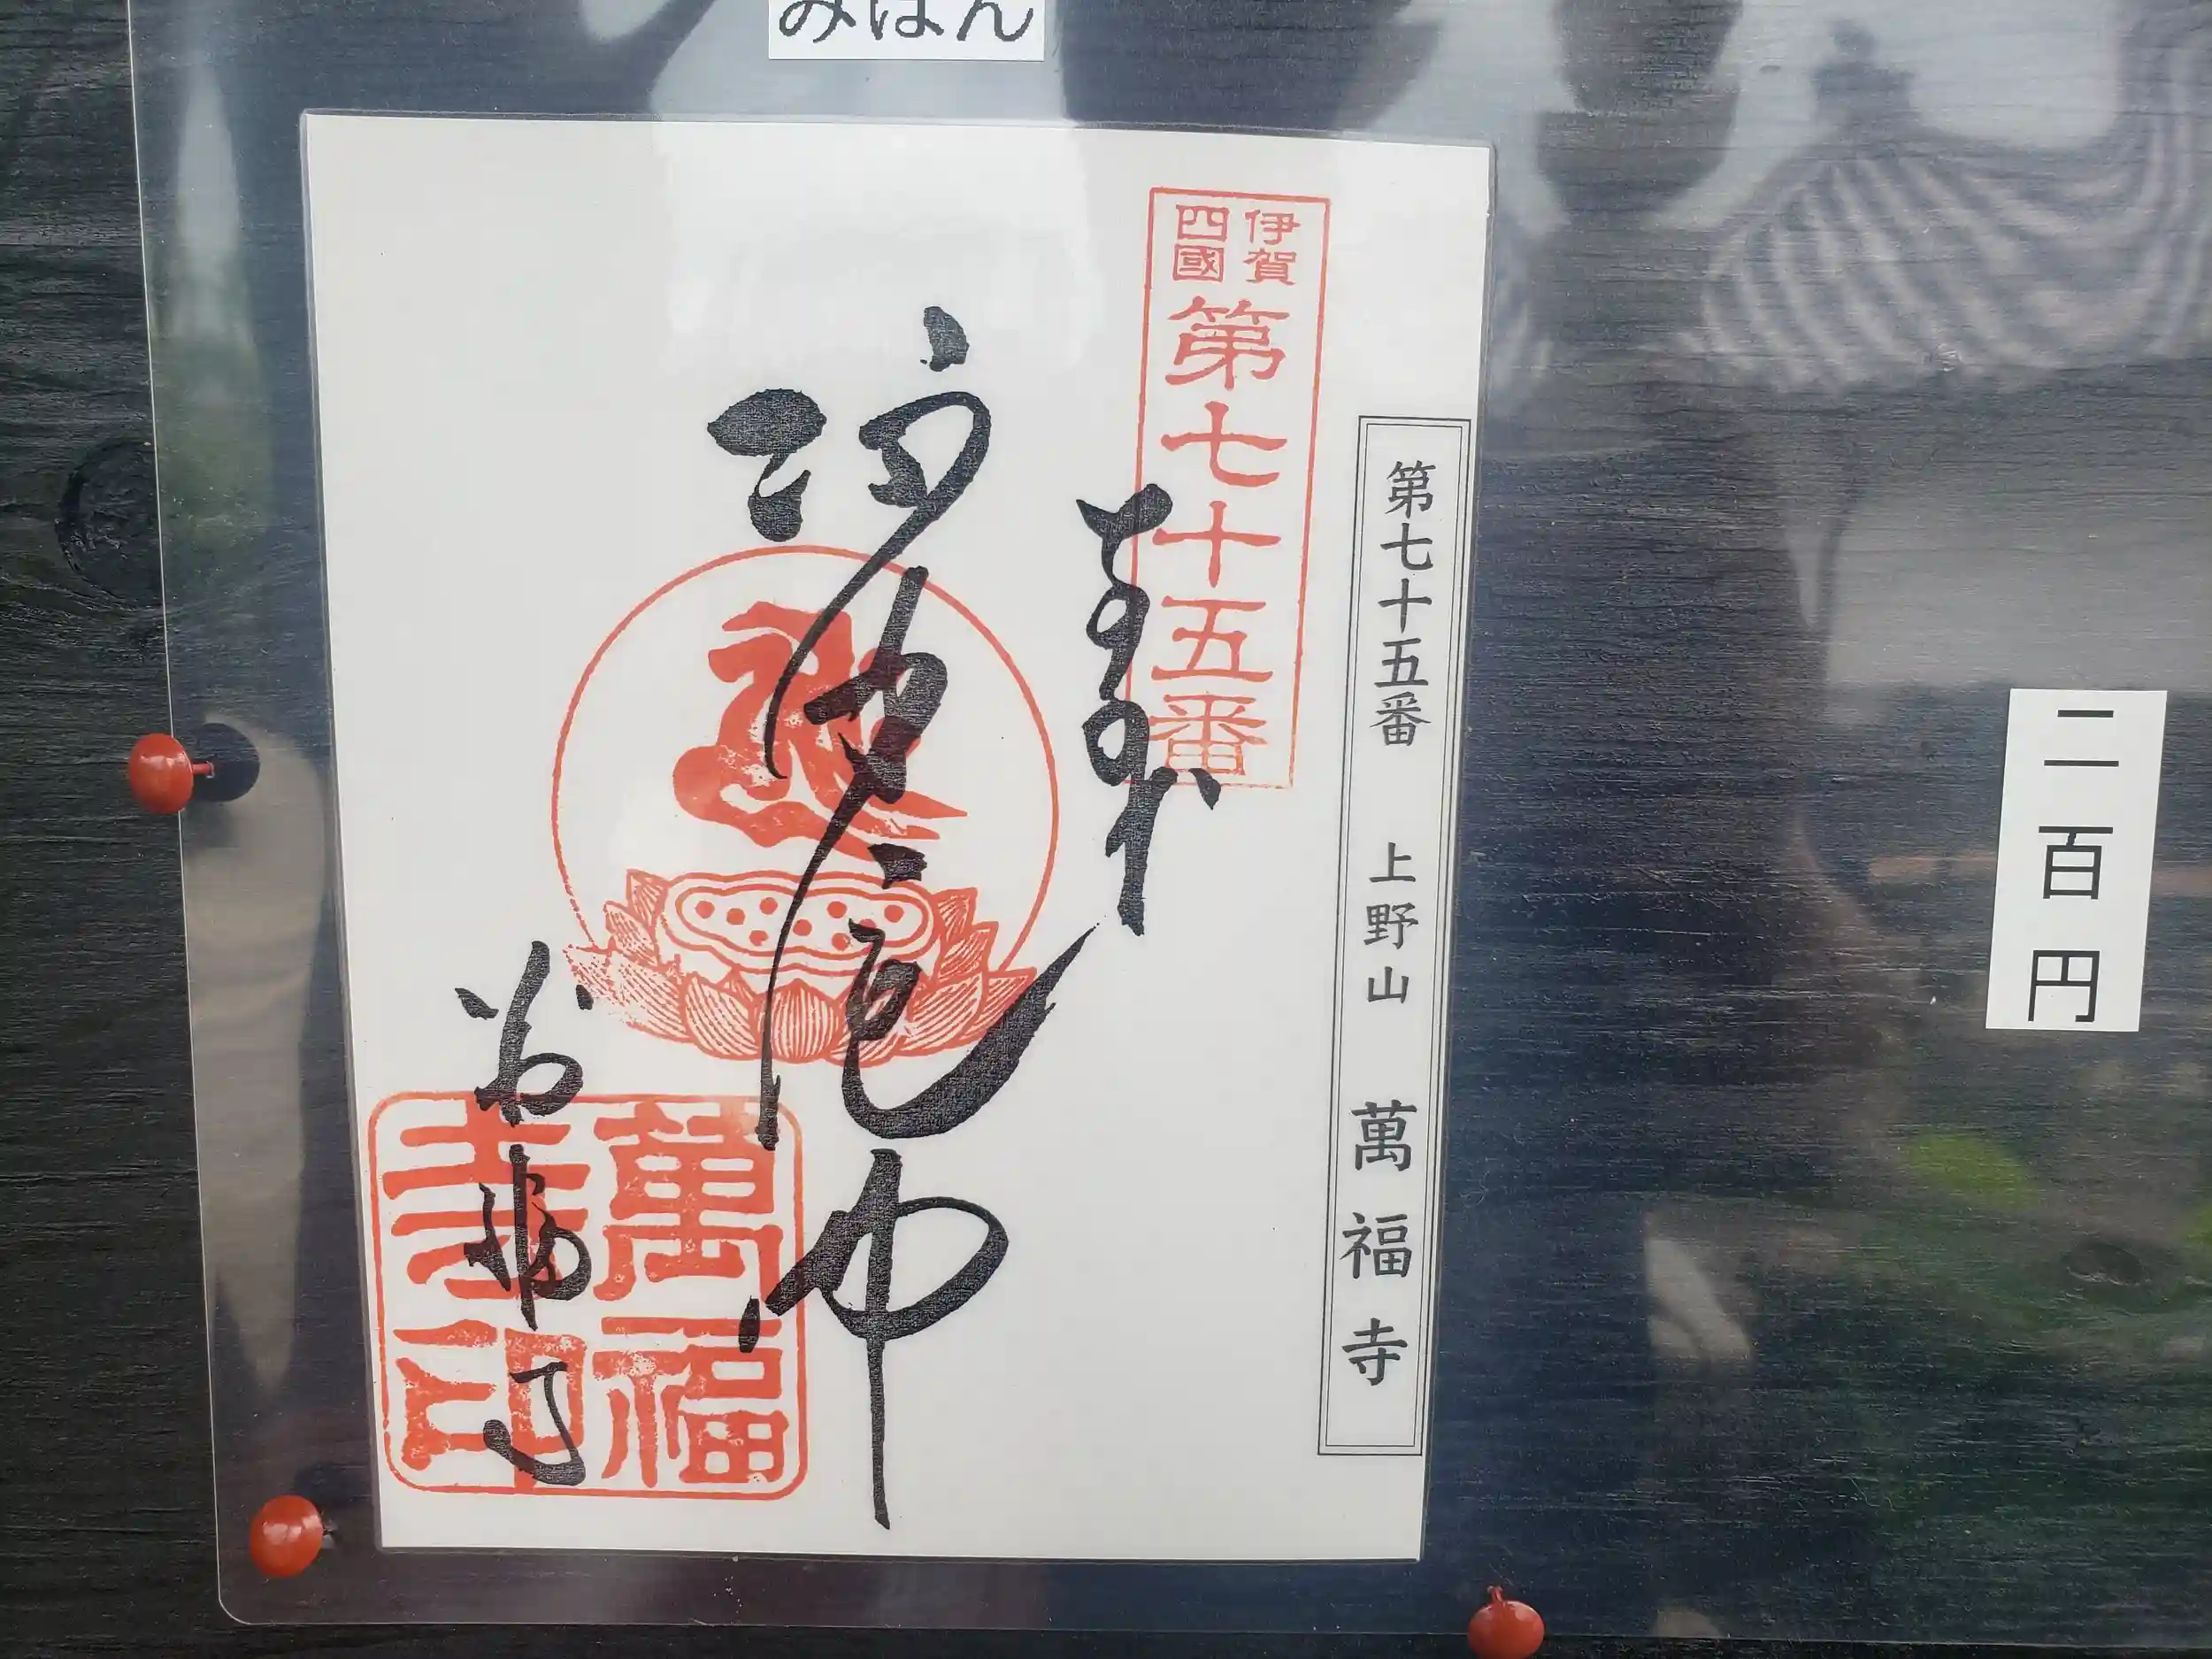 みほん
二百円
第七十五番 上野山 萬福寺
伊賀
四國
第七十五番
奉拝
萬福寺
萬福
寺印